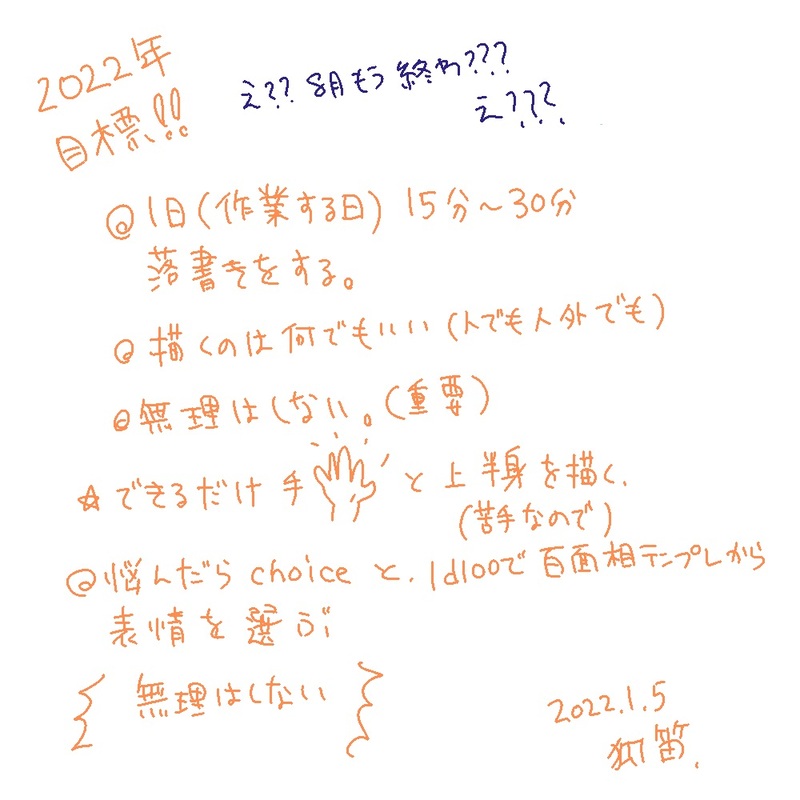 2022年
目標!!
え?? 8月もう終わ???
え???
◎1日(作業する日) 15分～30分
落書きをする。
◎描くのは何でもいい(人でも人外でも)
◎無理はしない。(重要)
☆できるだけ手と上半身を描く、
(苦手なので)
◎悩んだら choice と、1d100で百面相テンプレから
表情を選ぶ
無理はしない
2022.1.5
笛.